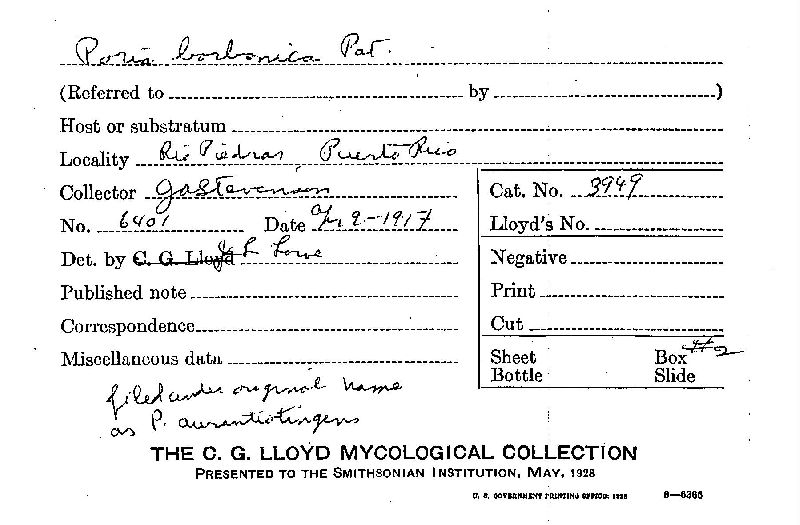 Poria borbonica Pat.
(Referred to by )
Host or substratum
Locality Rio Piedras, Puerto Rico
Collector JA Stevenson
Cat. No. 3949
No. 6401 Date Apr 9-1917
Lloyd's No.
Det. by C. G. Lloyd J L Lowe
Negative
Published note
Print
Correspondence
Cut
Miscellaneous data
Sheet Box #2
Bottle Slide
filed under original name
as P. aurantiotingens
THE C. G. LLOYD MYCOLOGICAL COLLECTION
PRESENTED TO THE SMITHSONIAN INSTITUTION, MAY, 1928
U. S. GOVERNMENT PRINTING OFFICE: 1928 8-6365